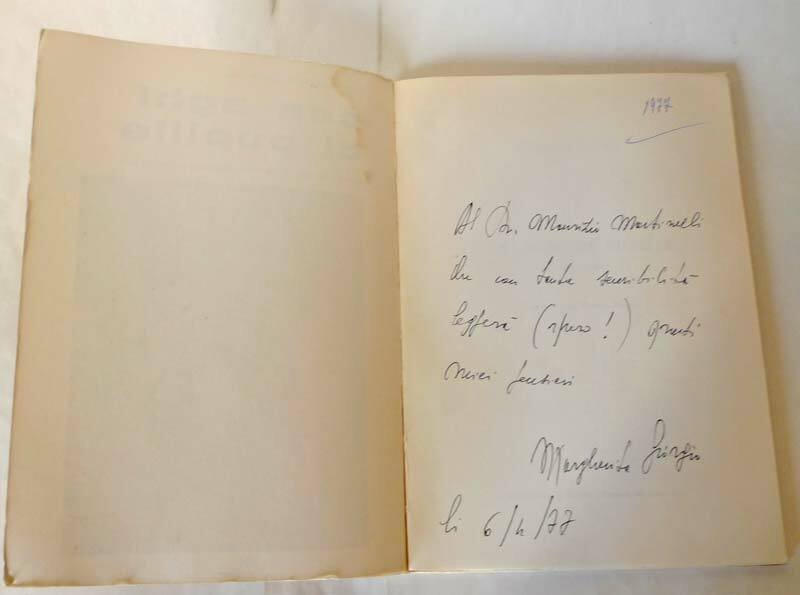 1977
Al Dr. Maurizio Martinelli
che con tanta sensibilità
leggerà (spero!) questi
miei sentieri
Margherita Giorgio
li 6/4/77